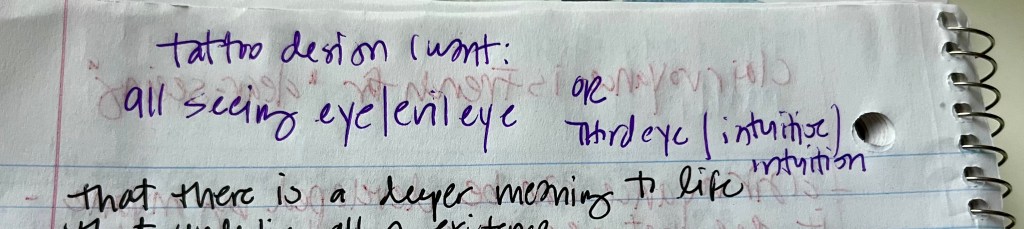 tattoo design I want:
all seeing eye/evil eye OR
Third eye (intuitive)
intuition
that there is a deeper meaning to life
all